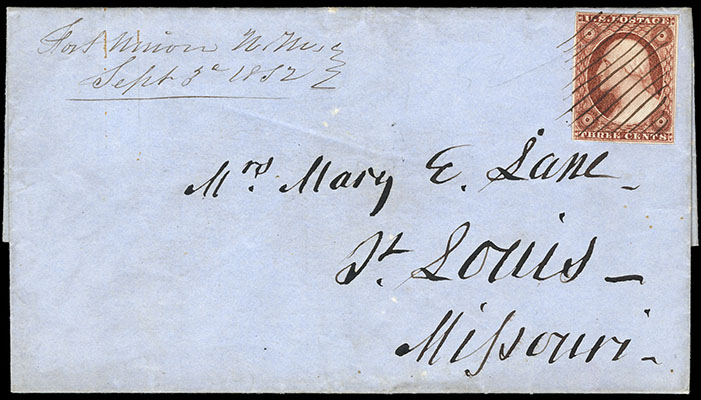 Fort Union N. Mex.
Sept 3ᵈ 1852
U.S. POSTAGE
THREE CENTS
Mrs. Mary E. Lane
St. Louis
Miſsouri